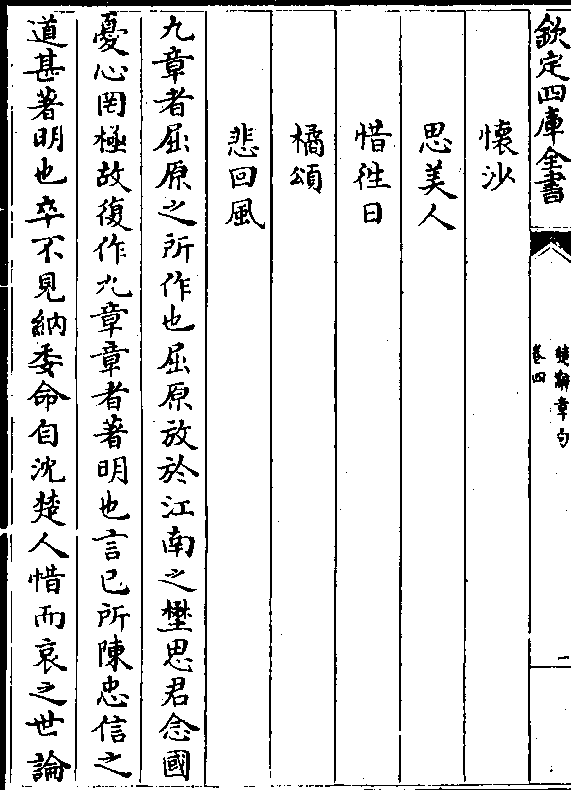 欽定四庫全書
楚辭章句
卷四
一
懷沙
思美人
惜徃日
橘頌
悲回風
九章者屈原之所作也屈原放於江南之壄思君念國
憂心罔極故復作九章章者著明也言已所陳忠信之
道甚著明也卒不見納委命自沈楚人惜而哀之世論